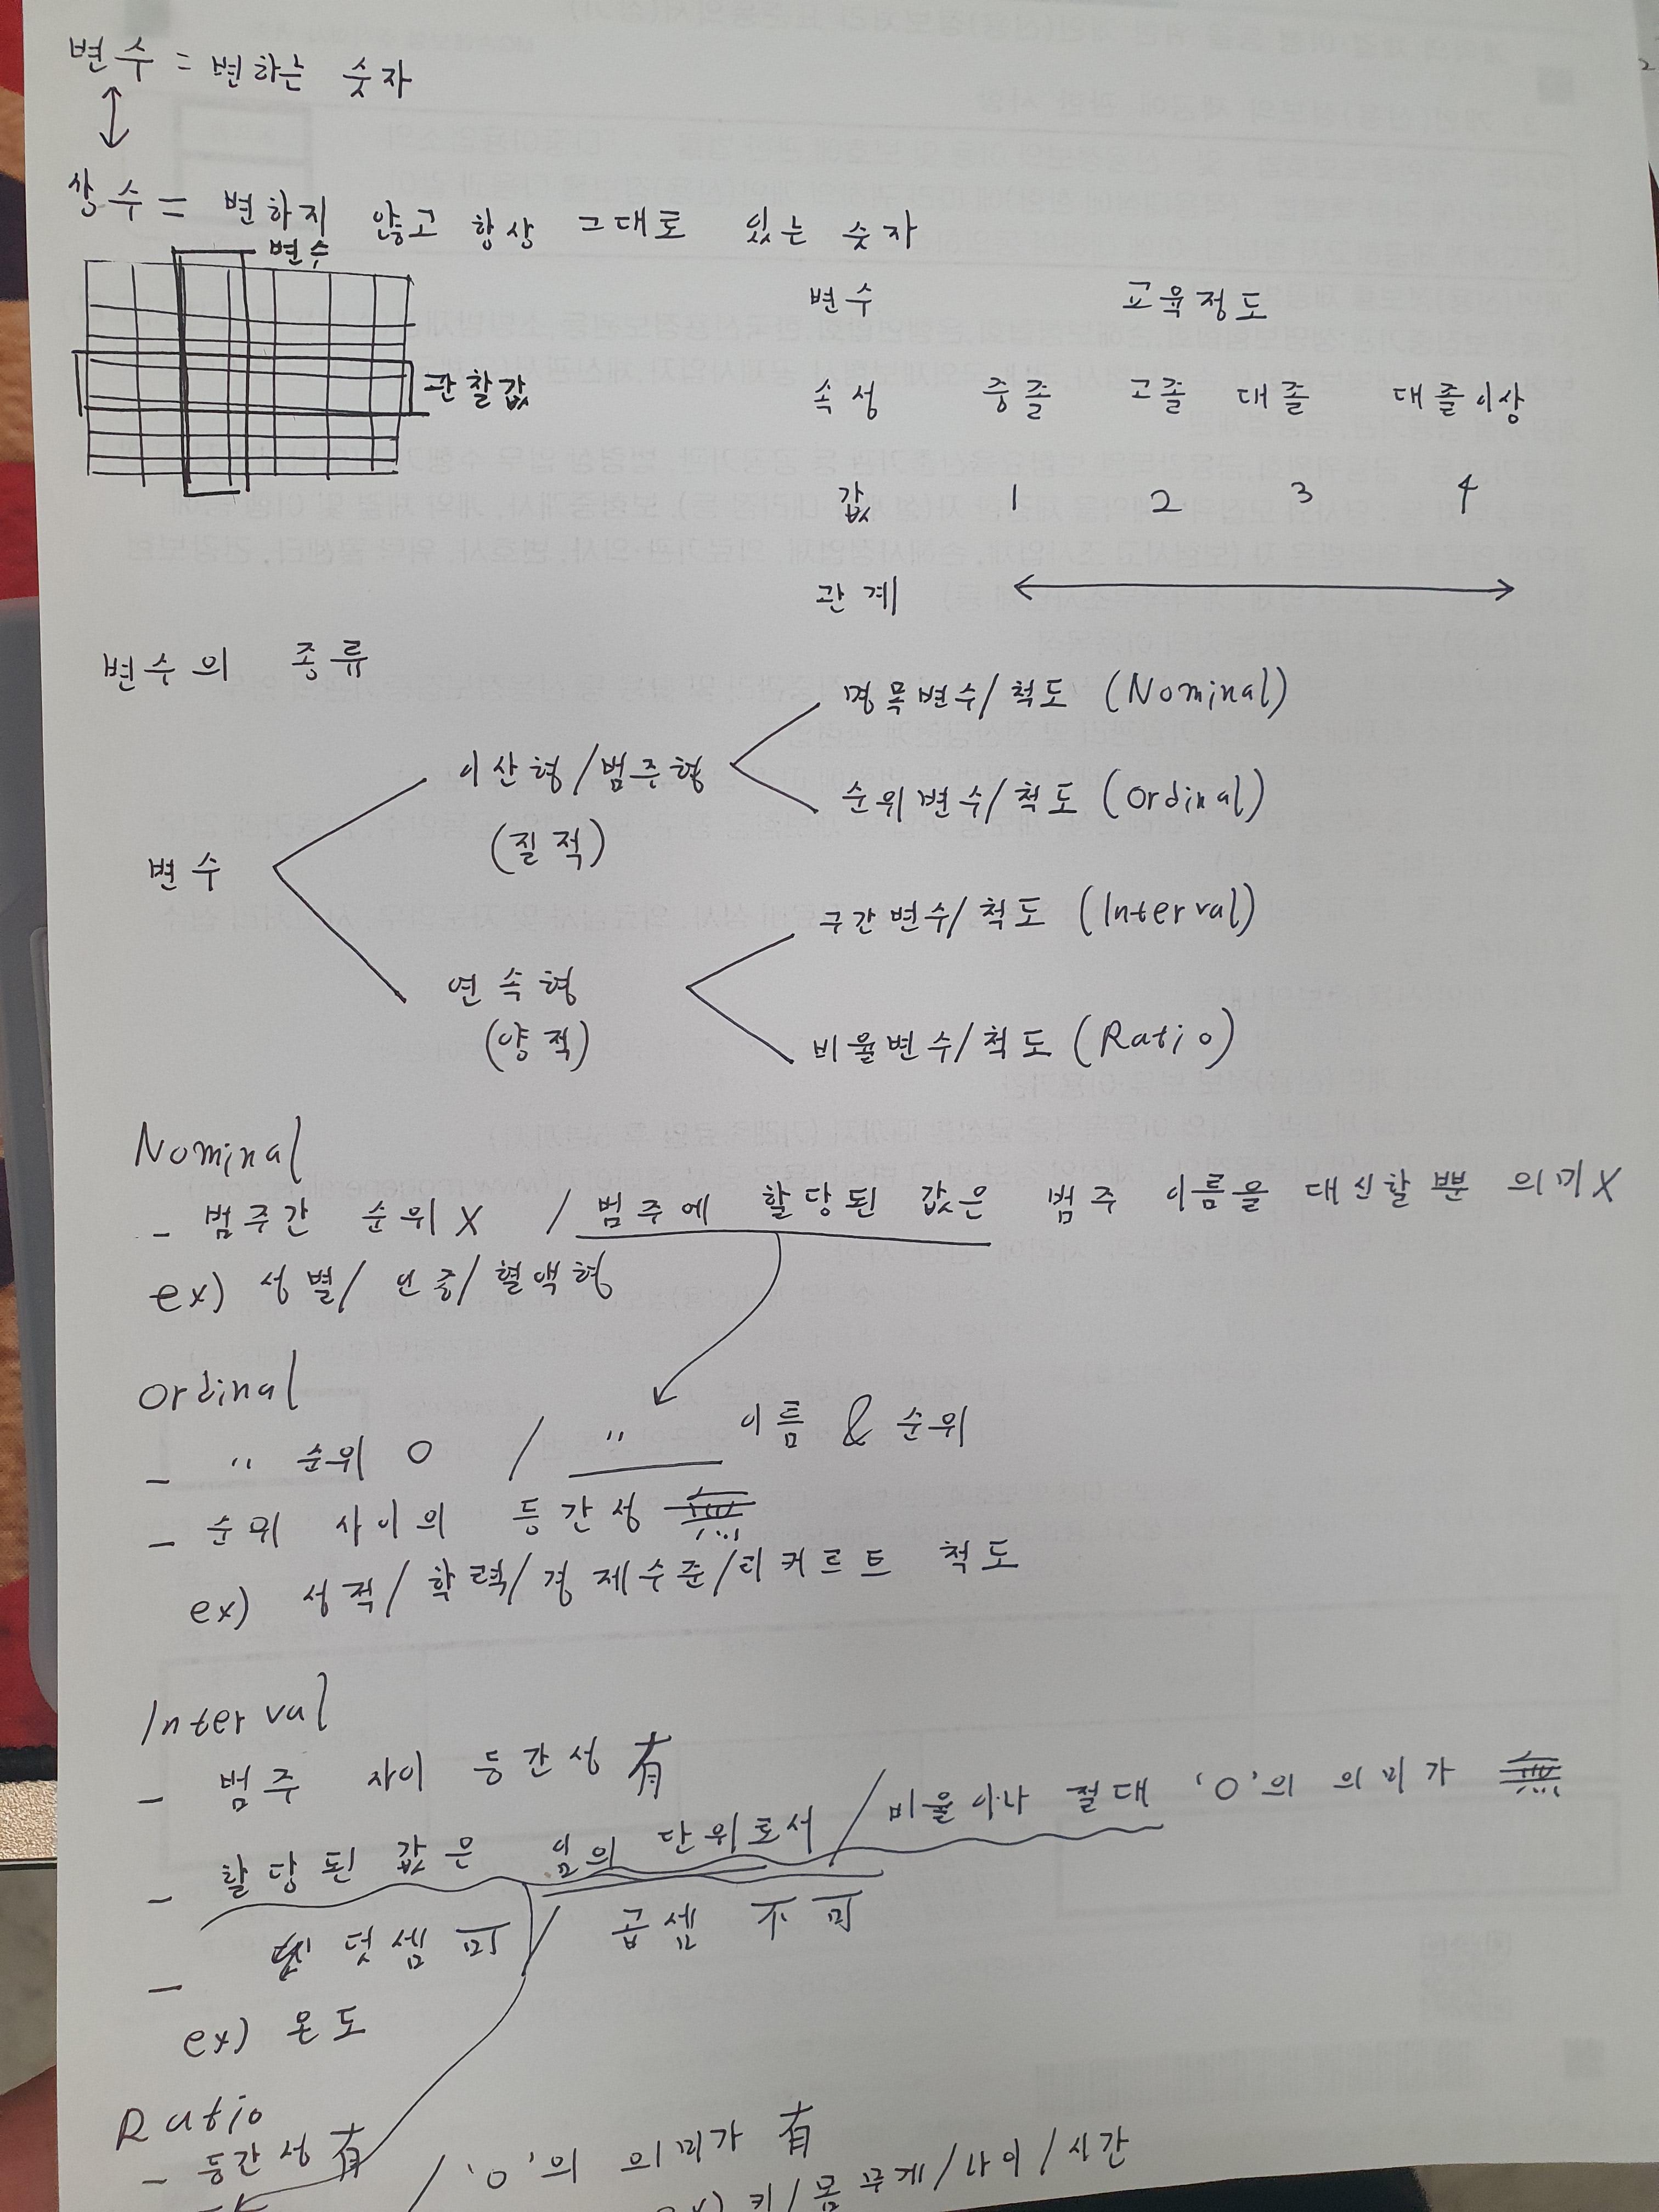 변수 = 변하는 숫자
상수 = 변하지 않고 항상 그대로 있는 숫자
변수
관찰값
변수 교육정도
속성 중졸 고졸 대졸 대졸이상
값 1 2 3 4
관계
변수의 종류
변수
이산형/범주형
(질적)
명목변수/척도 (Nominal)
순위변수/척도 (Ordinal)
연속형
(양적)
구간변수/척도 (Interval)
비율변수/척도 (Ratio)
Nominal
- 범주간 순위 X / 범주에 할당된 값은 범주 이름을 대신할 뿐 의미 X
ex) 성별/인종/혈액형
Ordinal
- " 순위 O / " 이름 & 순위
- 순위 사이의 등간성 無
ex) 성적/학력/경제수준/리커르트 척도
Interval
- 범주 사이 등간성 有
- 할당된 값은 셈의 단위로서 / 비율이나 절대 '0'의 의미가 無
- 덧셈 可 / 곱셈 不可
ex) 온도
Ratio
- 등간성 有 / '0'의 의미가 有
ex) 키/몸무게/나이/시간